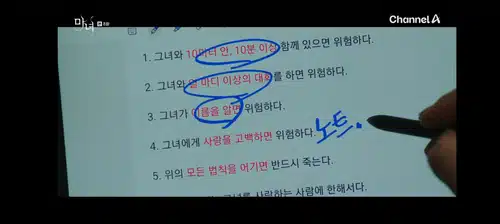 마녀
Channel A
1. 그녀와 10미터 안, 10분 이상 함께 있으면 위험하다.
2. 그녀와 열 마디 이상의 대화를 하면 위험하다.
3. 그녀가 이름을 알면 위험하다.
4. 그녀에게 사랑을 고백하면 위험하다. 노트.
5. 위의 모든 법칙을 어기면 반드시 죽는다.
그녀를 사랑하는 사람에 한해서다.